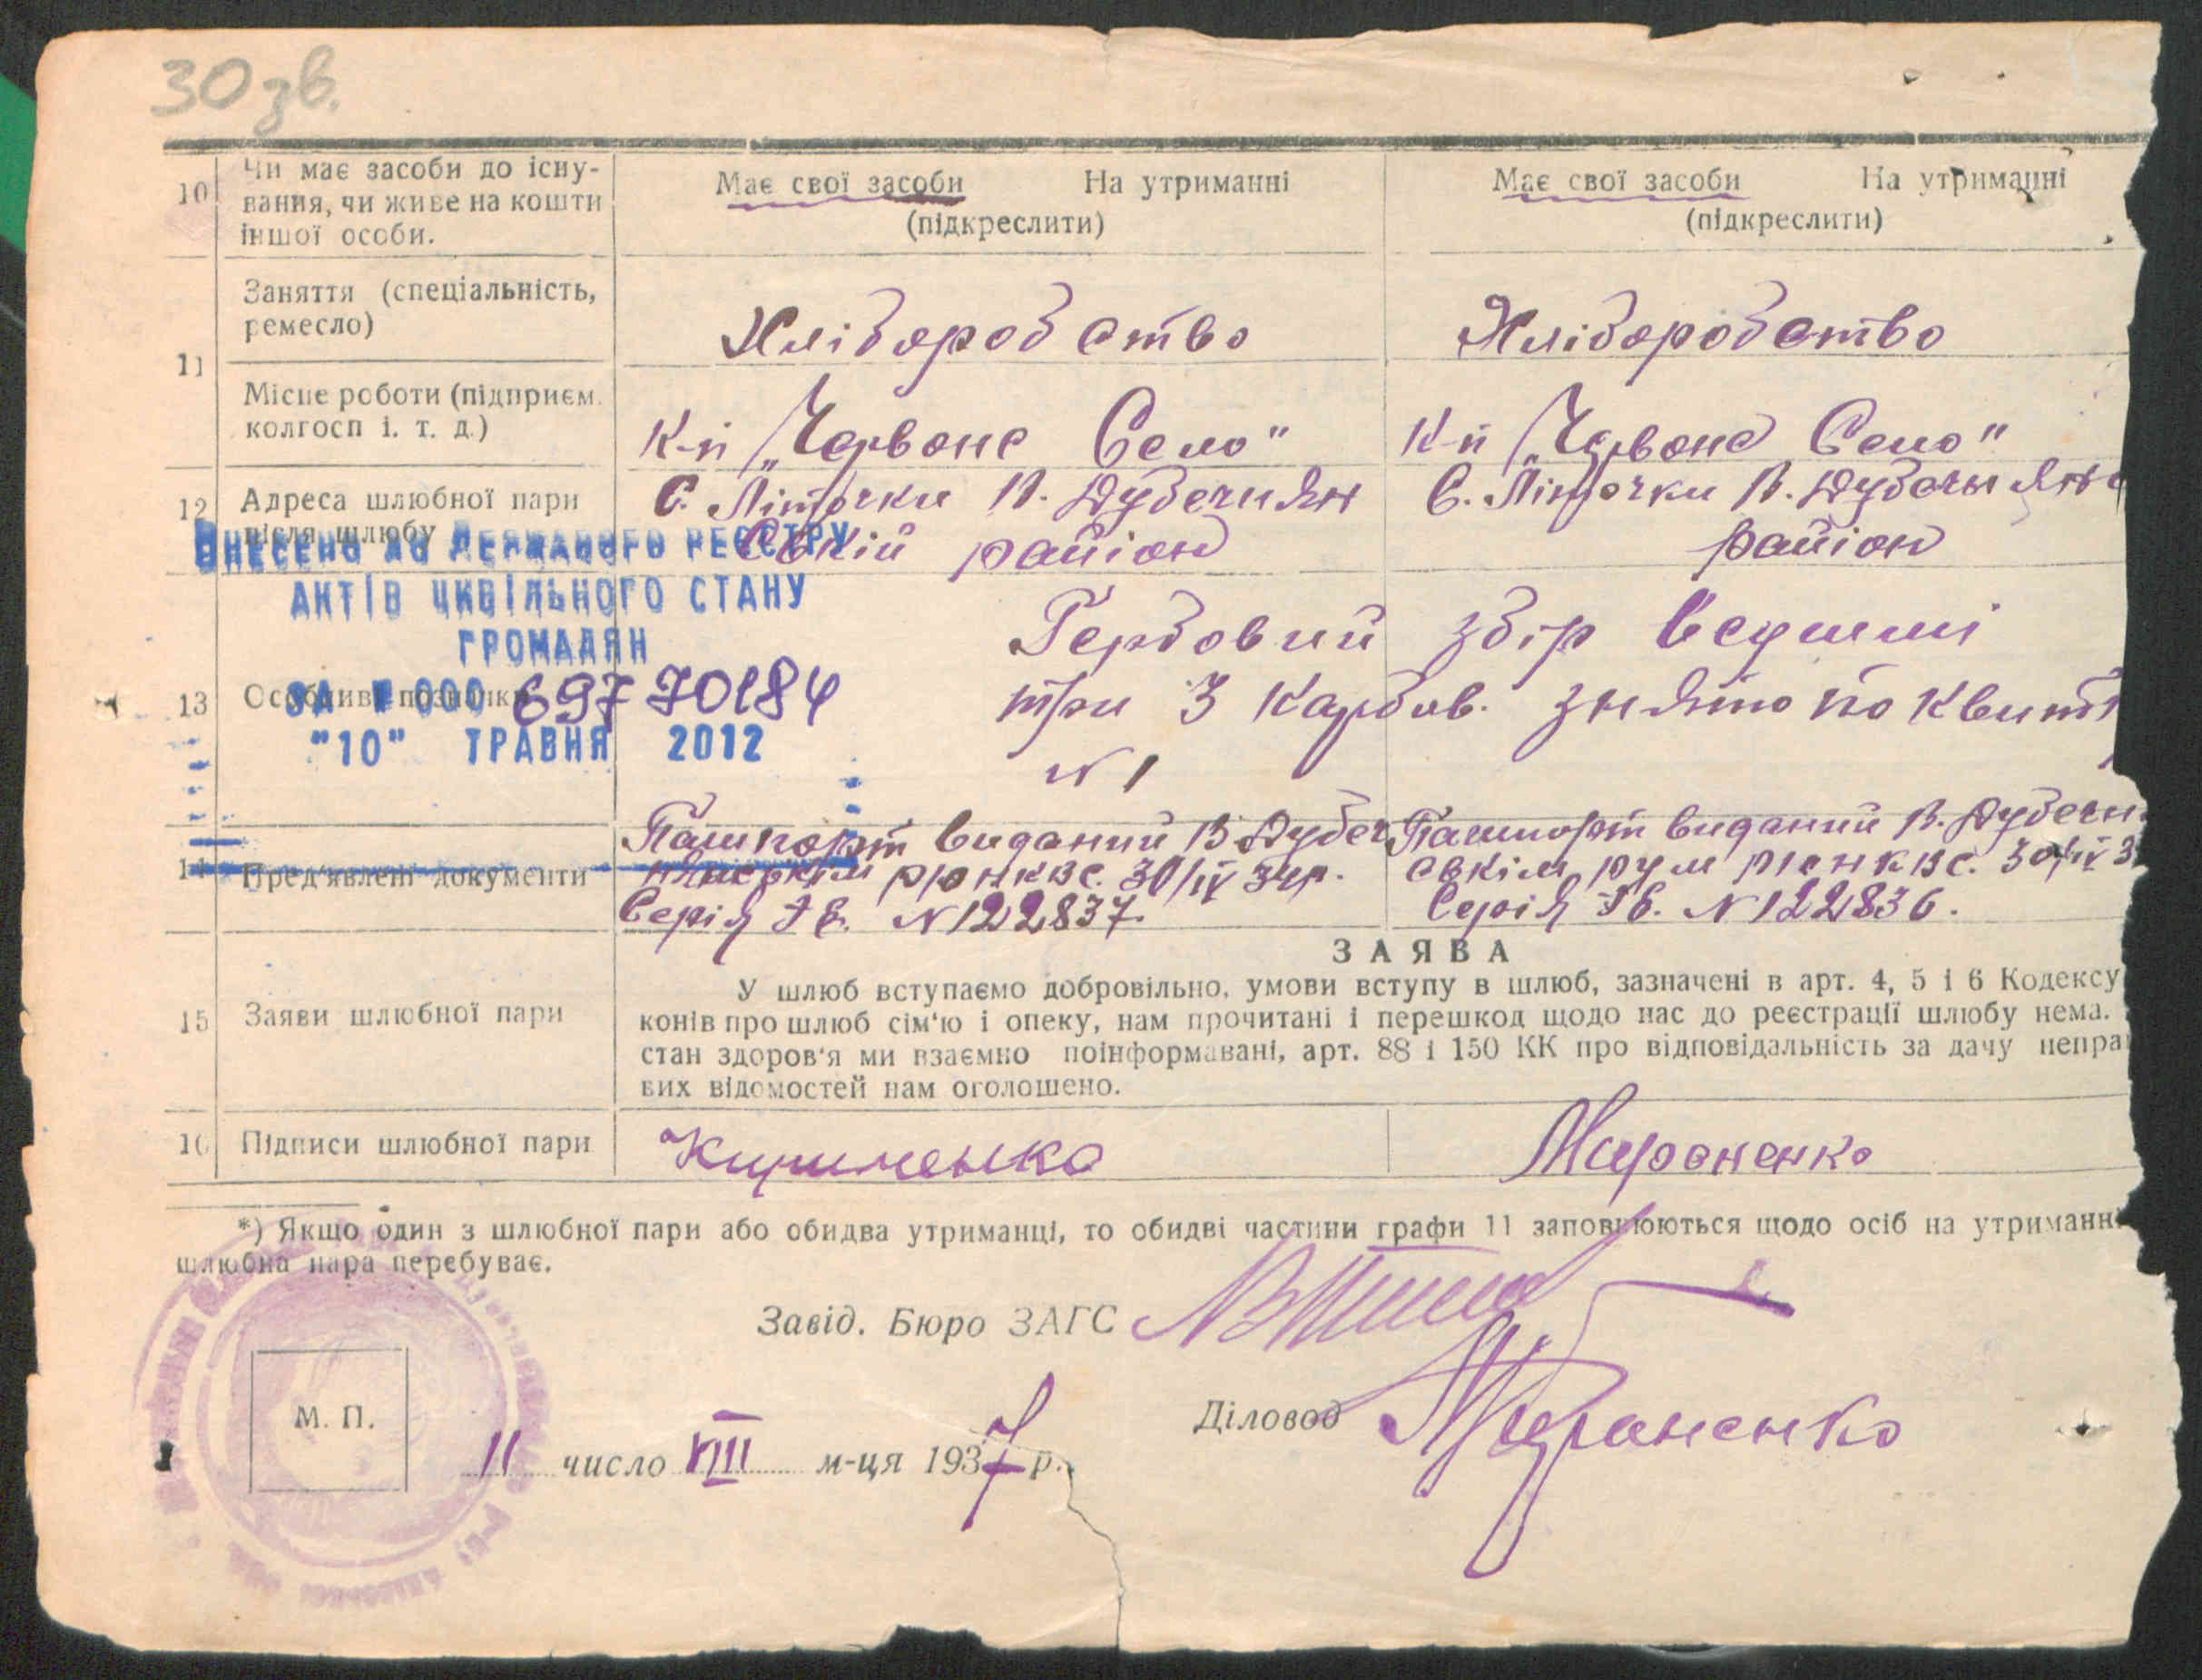 30 зв.
10 Чи має засоби до існу-
вання, чи живе на кошти
іншої особи.
Має свої засоби На утриманні
(підкреслити)
Має свої засоби На утриманні
(підкреслити)
11 Заняття (спеціальність,
ремесло)
Хліборобство
Хліборобство
Місце роботи (підприєм.
колгосп і. т. д.)
К-п „Червоне Село"
К-п „Червоне Село"
12 Адреса шлюбної пари
після шлюбу
С. Літочки В. Дубечнян
ській район
С. Літочки В. Дубечнянс
район
ВНЕСЕНО ДО ДЕРЖАВНОГО РЕЄСТРУ
АКТІВ ЦИВІЛЬНОГО СТАНУ
ГРОМАДЯН
ЗА № 000 697 70184
"10" ТРАВНЯ 2012
13 Особливі познанки
Гербовий збір
три 3 карбов. знято по квит
№ 1
14 Пред'явлені документи
Пашпорт виданий В Дубеч
30/IV 34р.
Серія № 122837.
Пашпорт виданий В. Дубечн
ським 30/IV 3
Серія № 122836.
15 Заяви шлюбної пари
ЗАЯВА
У шлюб вступаємо добровільно, умови вступу в шлюб, зазначені в арт. 4, 5 і 6 Кодексу
конів про шлюб сім'ю і опеку, нам прочитані і перешкод щодо нас до реєстрації шлюбу нема.
стан здоров'я ми взаємно поінформавані, арт. 88 і 150 КК про відповідальність за дачу непра
вих відомостей нам оголошено.
16 Підписи шлюбної пари
Мироненко
*) Якщо один з шлюбної пари або обидва утриманці, то обидві частини графи 11 заповнюються щодо осіб на утриманні
шлюбна пара перебуває.
Завід. Бюро ЗАГС
М. П.
Діловод Мироненко
11 число VIII м-ця 1937 р.